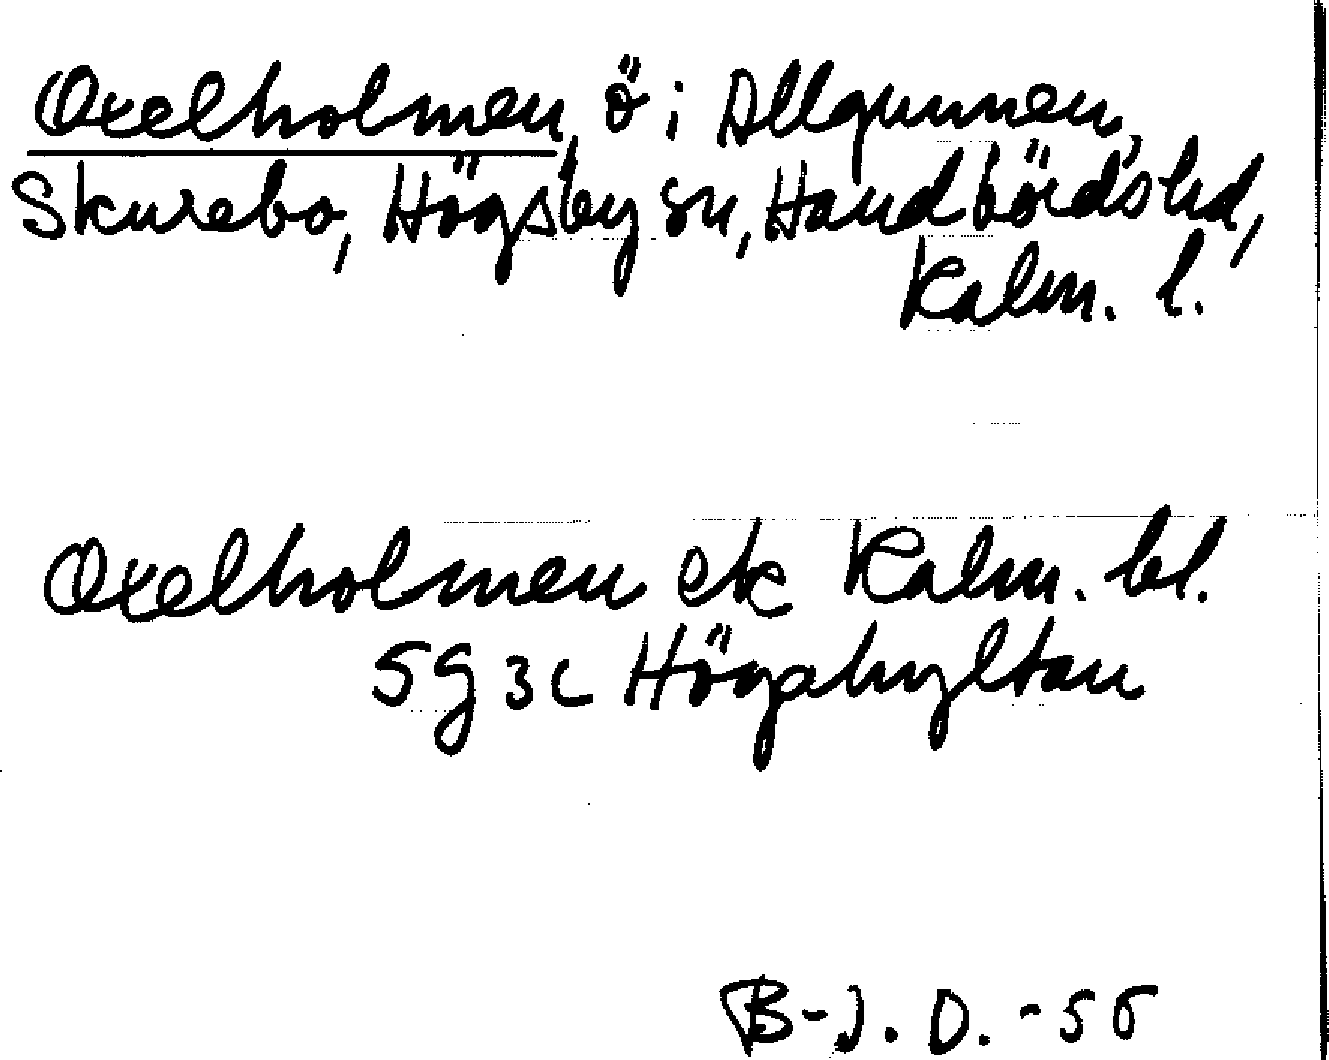 Oxelholmen, ö i Allgunnen,
Skurebo, Högsby sn, Handbörds hd,
Kalm. l.
Oxelholmen ek Kalm. bl.
5g 3c Högahyltan
B-J. D. -56